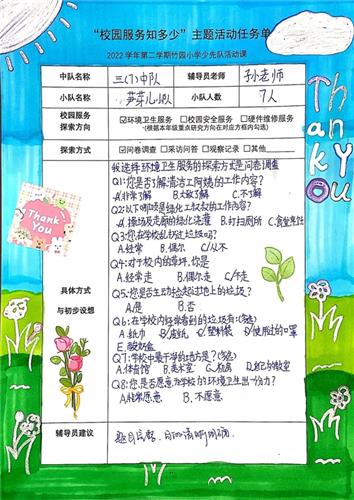 “校园服务知多少”主题活动任务单
2022学年第二学期竹园小学少先队活动课
中队名称 三(7)中队 辅导员老师 孙老师
小队名称 笋芽儿小队 小队人数 7人
校园服务探索方向 ☑环境卫生服务 □校园安全服务 □硬件维修服务
(根据本年级重点研究方向在对应方框内勾选)
探索方式 ☑问卷调查 □采访问答 □观察记录 □其他
具体方式与初步设想
我选择环境卫生服务的探索方式是问卷调查
Q1:您是否了解清洁工阿姨的工作内容?
A.非常了解 B.大致了解 C.不了解
Q2:以下哪项是绿化工叔叔的工作内容?
A.操场及走廊的绿化浇灌 B.打扫厕所 C.食堂烹饪
Q3:您在学校乱扔过垃圾吗?
A.经常 B.偶尔 C.从不
Q4:对于校内的草坪,你是
A.经常走 B.偶尔走 C.不走
Q5:您是否主动捡起过地上的垃圾?
A.是 B.否
Q6:在学校内经常看到的垃圾有(多选)
A.纸巾 B.废纸 C.塑料袋 D.使用过的口罩
E.酸奶盒
Q7:学校中最干净的地方是?(多选)
A.体育馆 B.美术室 C.机房 D.自己的教室
Q8:您是否愿意为学校的环境卫生出一份力?
A.非常愿意 B.不愿意
辅导员建议
Thank You
Thank You